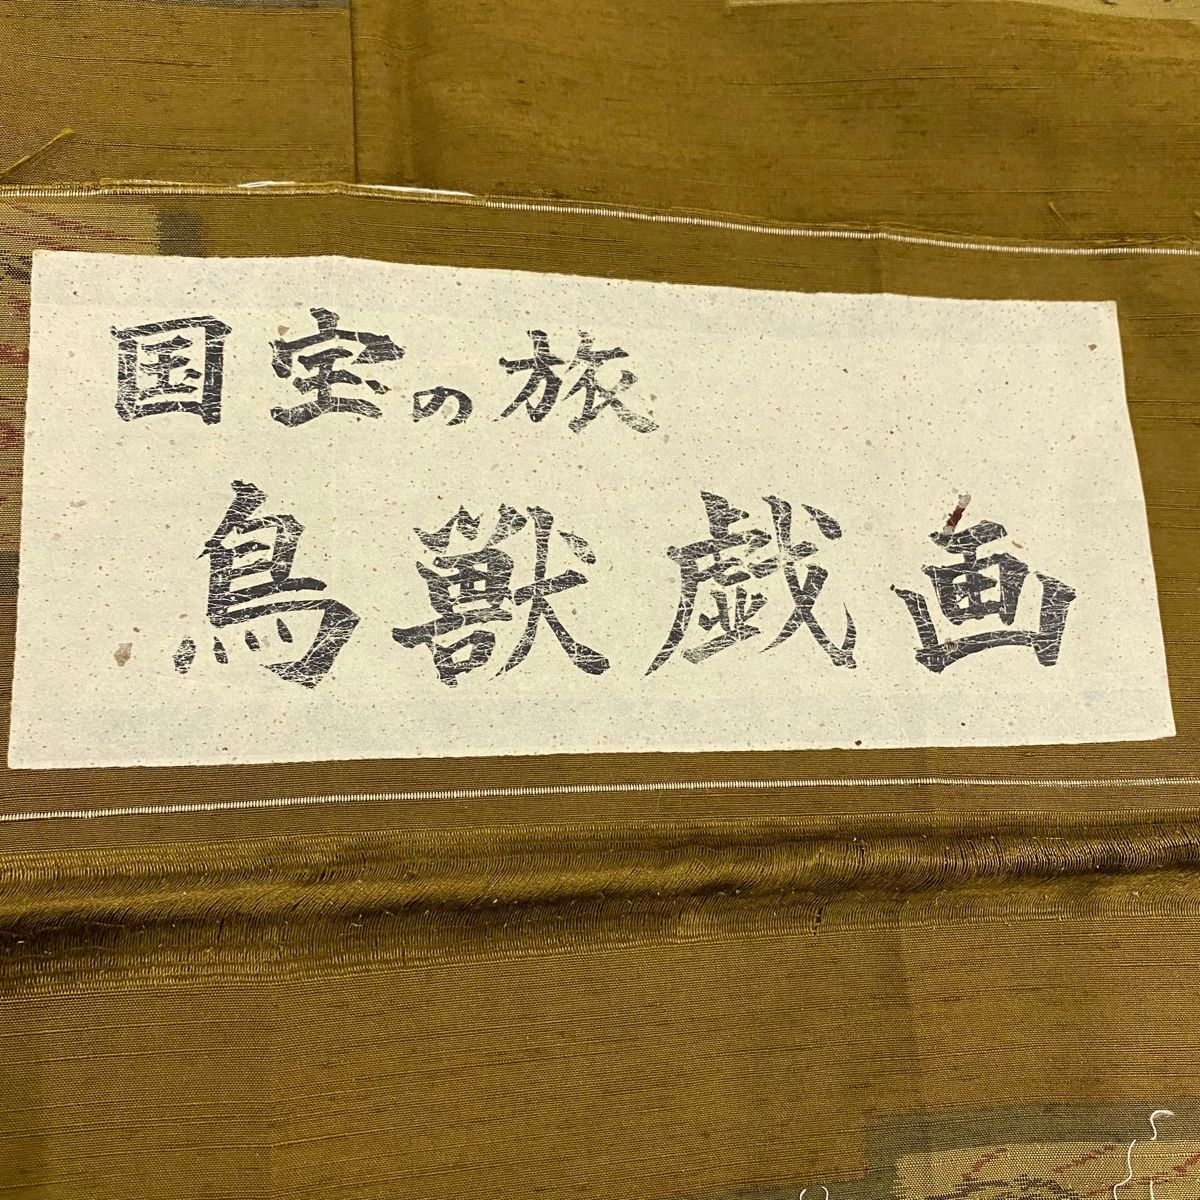 国宝の旅
鳥獣戯画